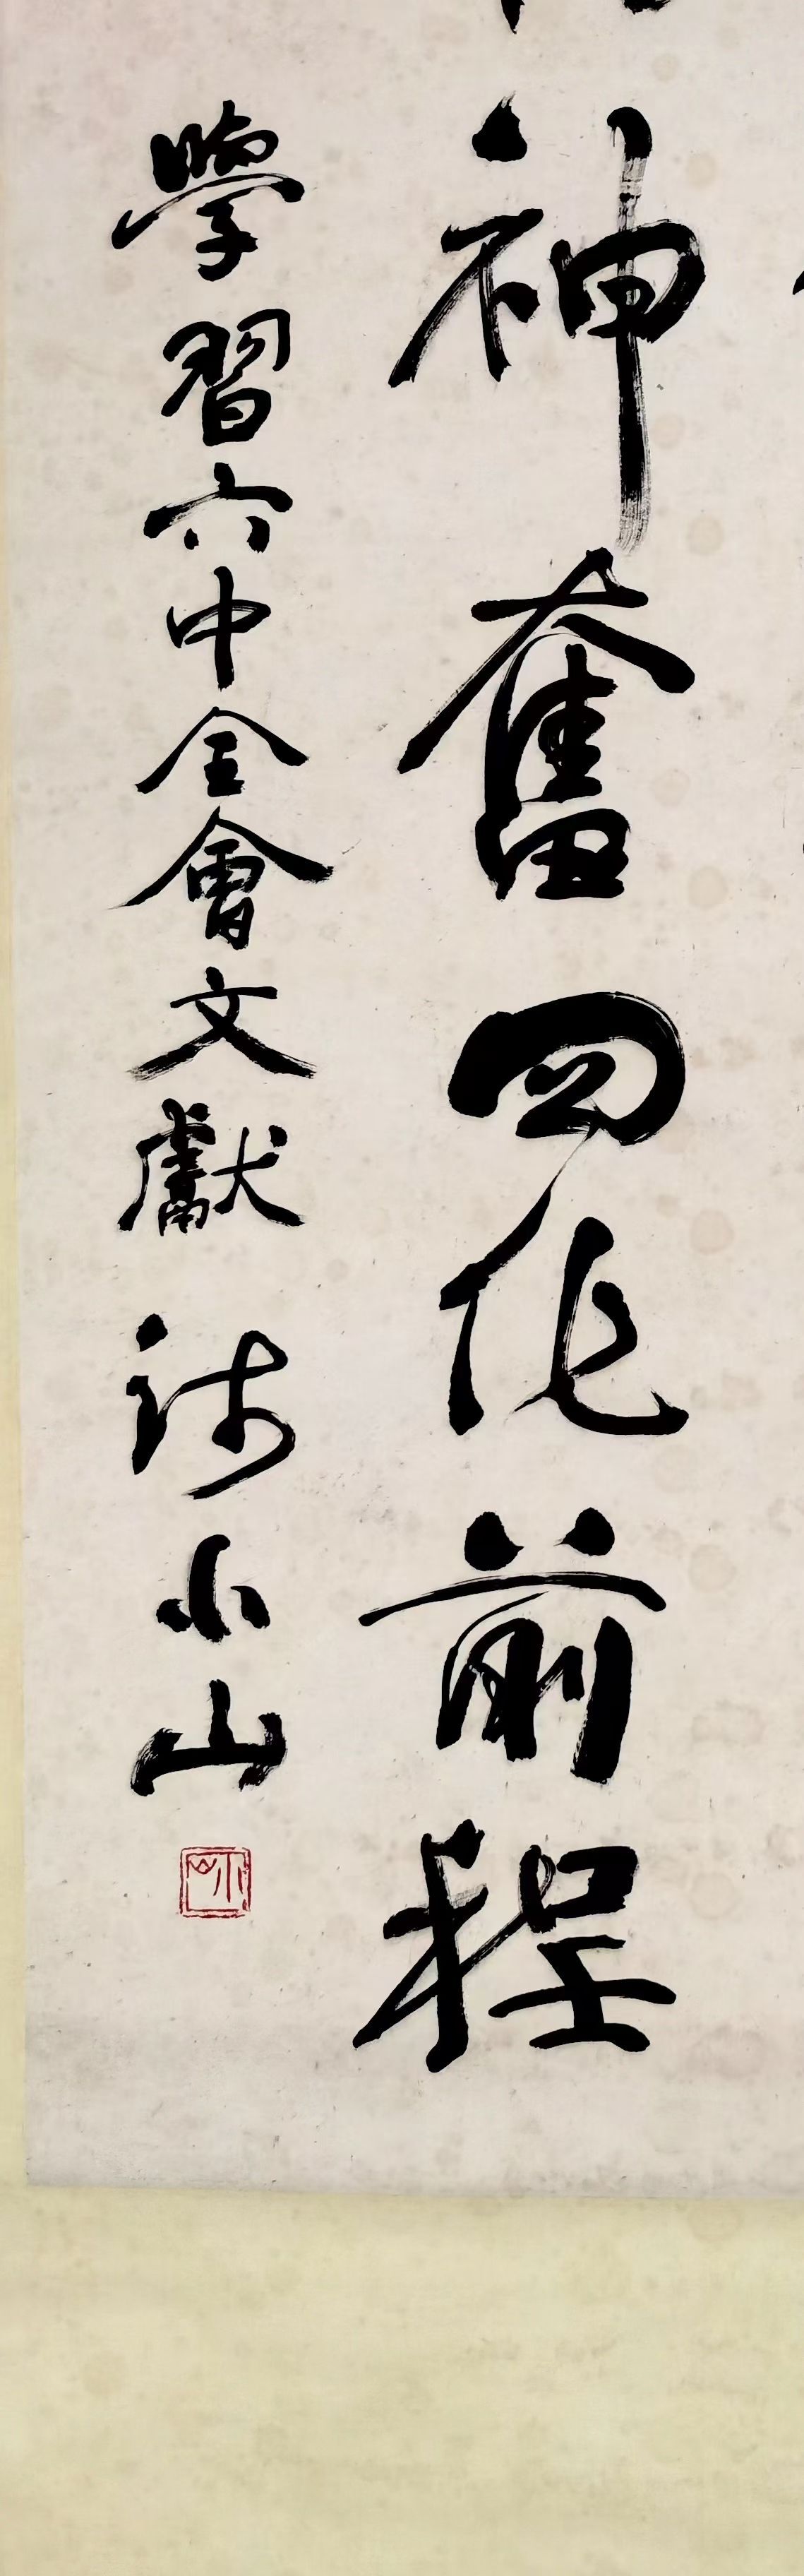 神奮四化前程
學習六中全會文獻 詩 小山
小山